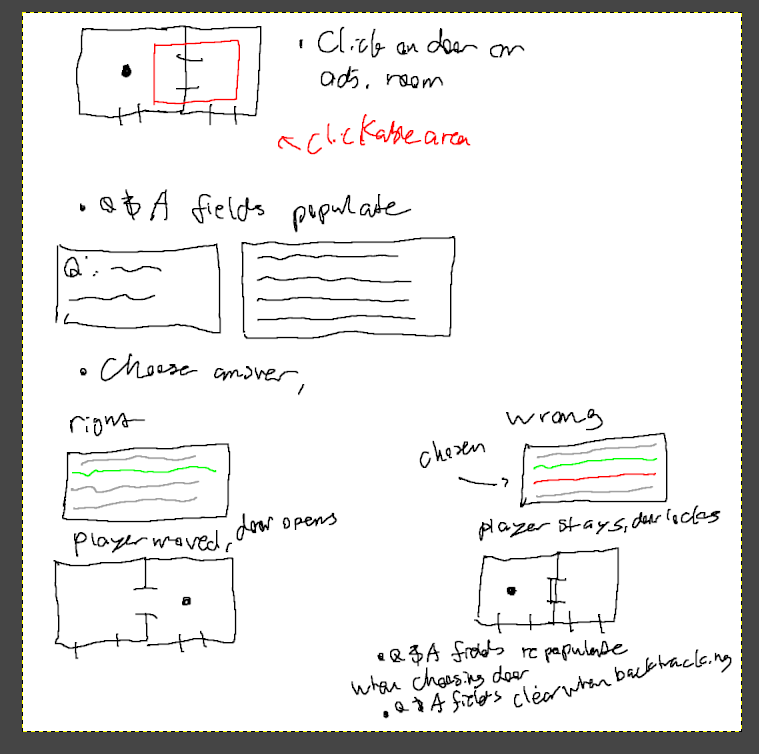 • Click on door or
adj. room
← clickable area
• Q & A fields populate
Q:
• Choose answer,
right
wrong
chosen
player moved, door opens
player stays, door locks
• Q & A fields repopulate
when choosing door
• Q & A fields clear when backtracking